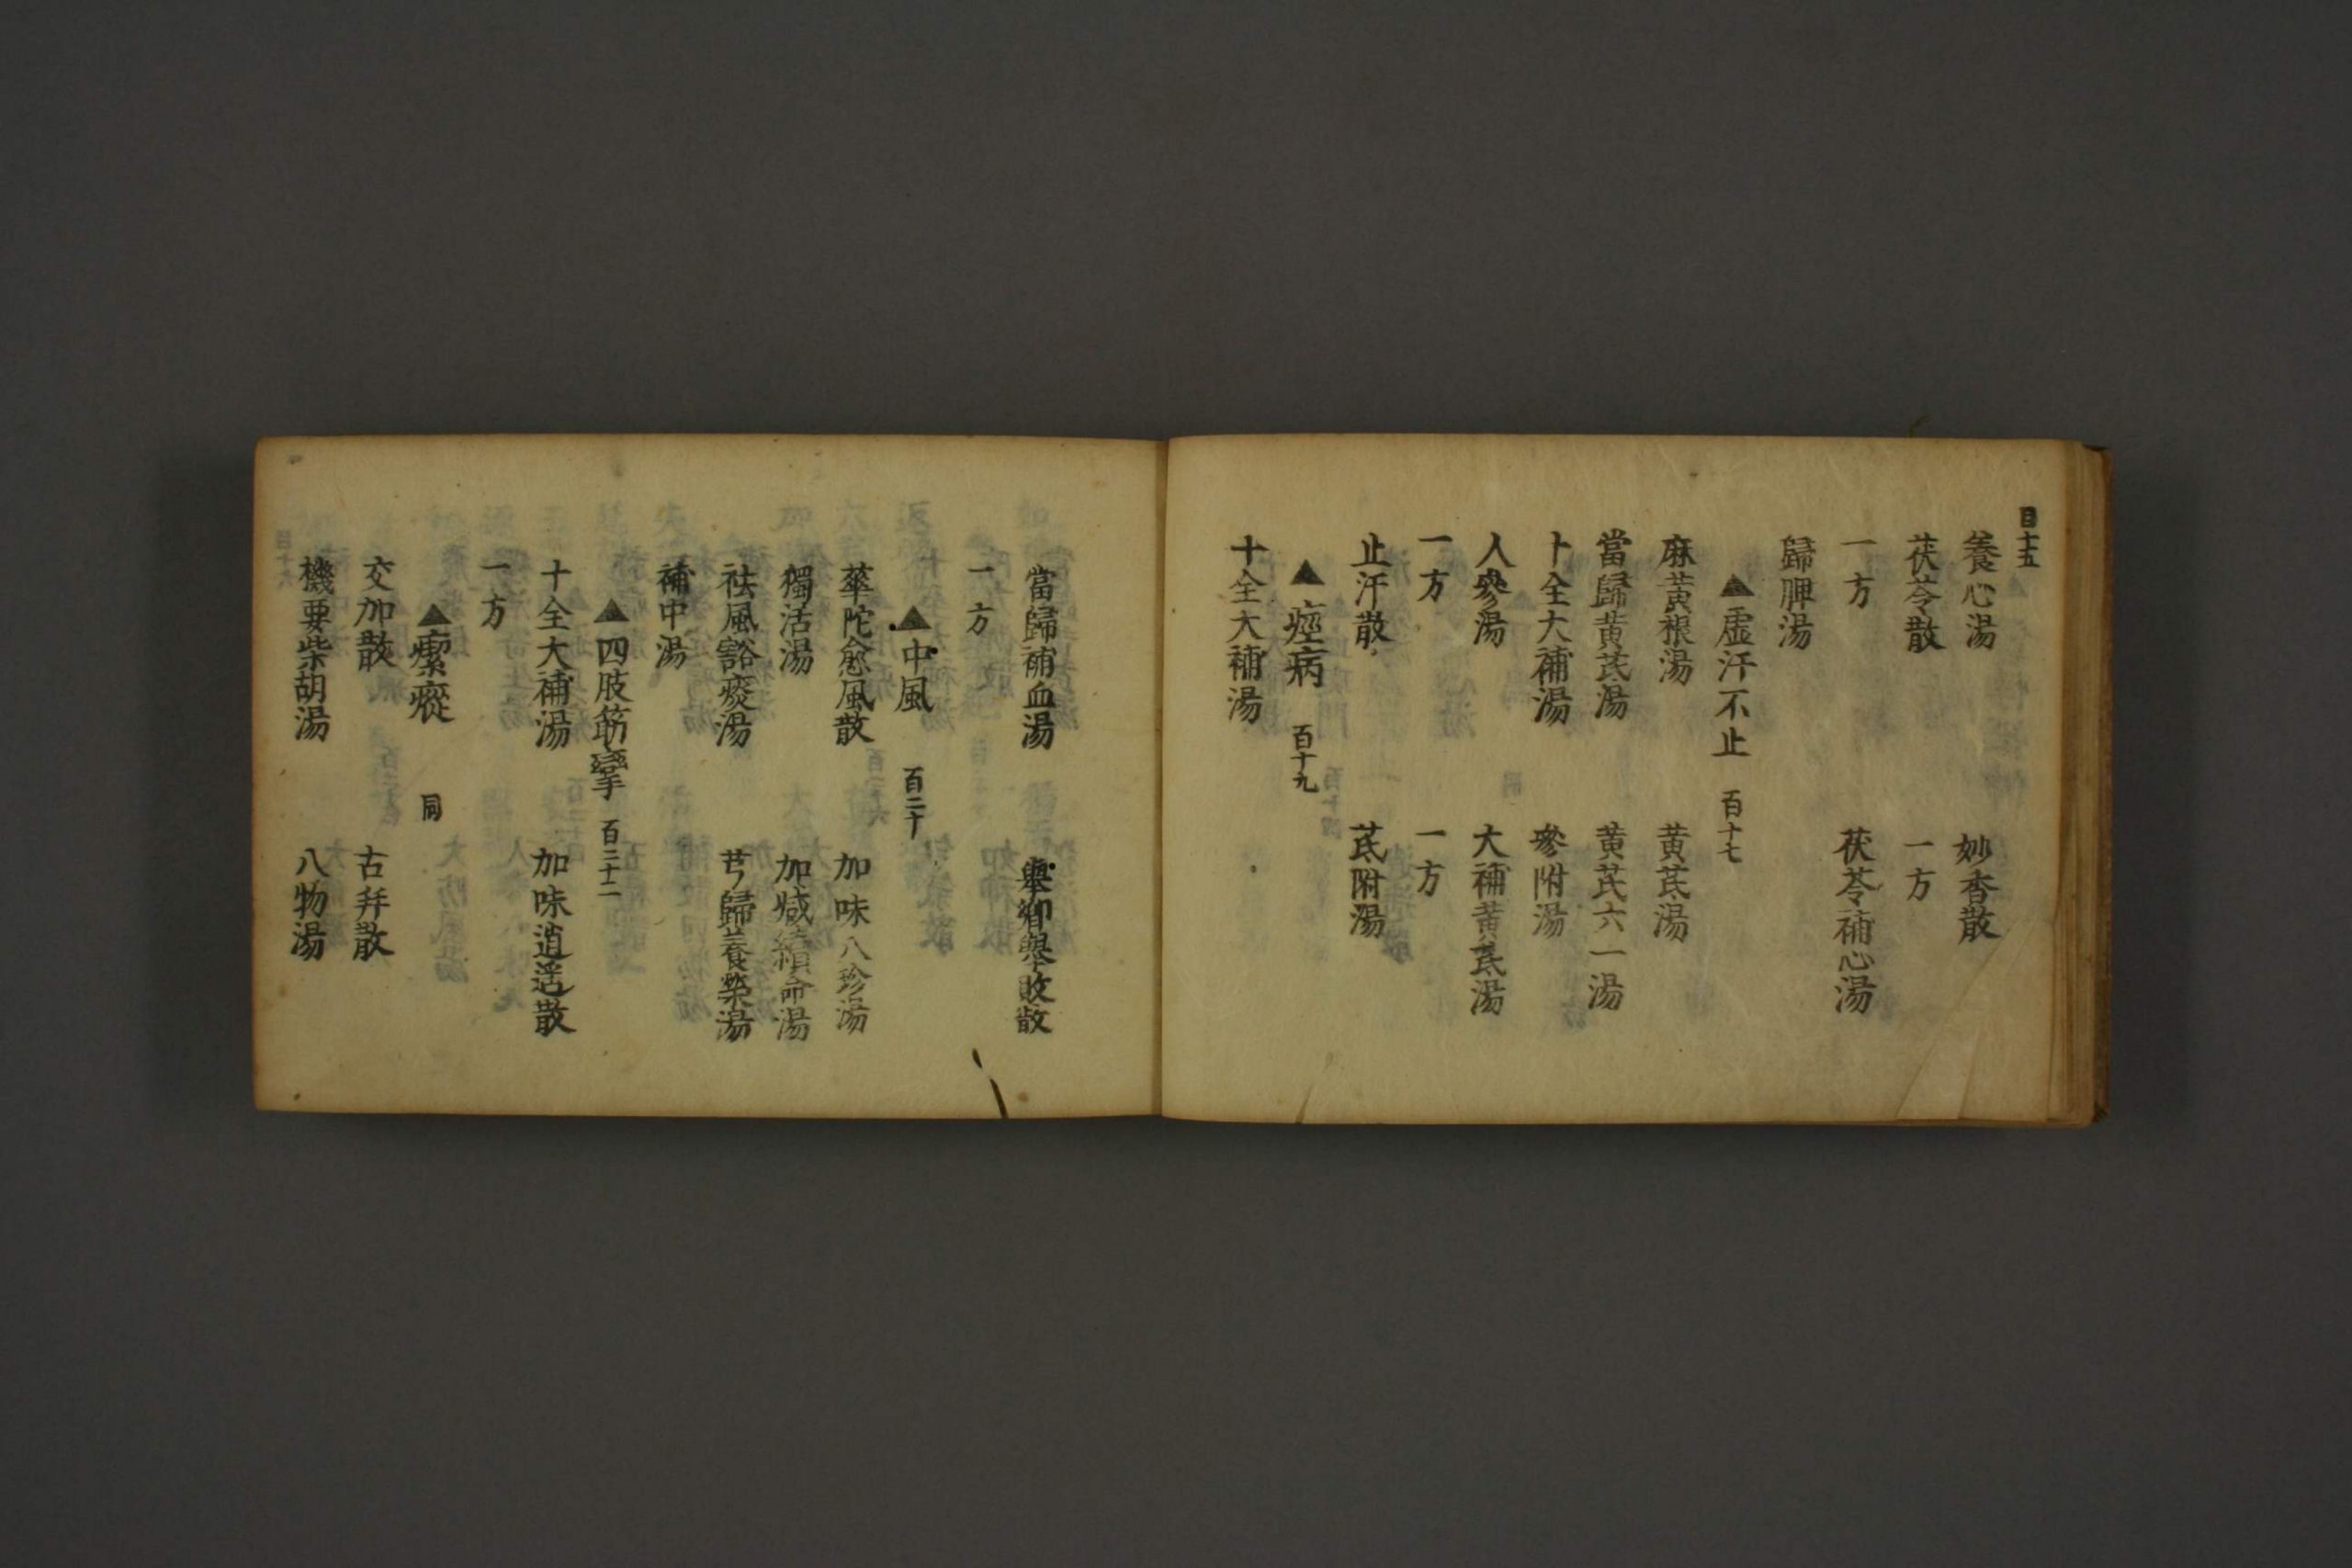 目十五
養心湯　妙香散
茯苓散　一方
一方　茯苓補心湯
歸脾湯
▲虛汗不止　百十七
麻黄根湯　黄芪湯
當歸黄芪湯　黄芪六一湯
十全大補湯　參附湯
人參湯　大補黄芪湯
一方　一方
止汗散　芪附湯
▲痙病　百十九
十全大補湯
當歸補血湯　擧卿擧敗散
一方
▲中風　百二十
華陀愈風散　加味八珍湯
獨活湯　加减續命湯
祛風豁痰湯　芎歸養榮湯
補中湯
▲四肢筋攣　百二十二
十全大補湯　加味逍遥散
一方
▲瘈瘲　同
交加散　古拜散
機要柴胡湯　八物湯